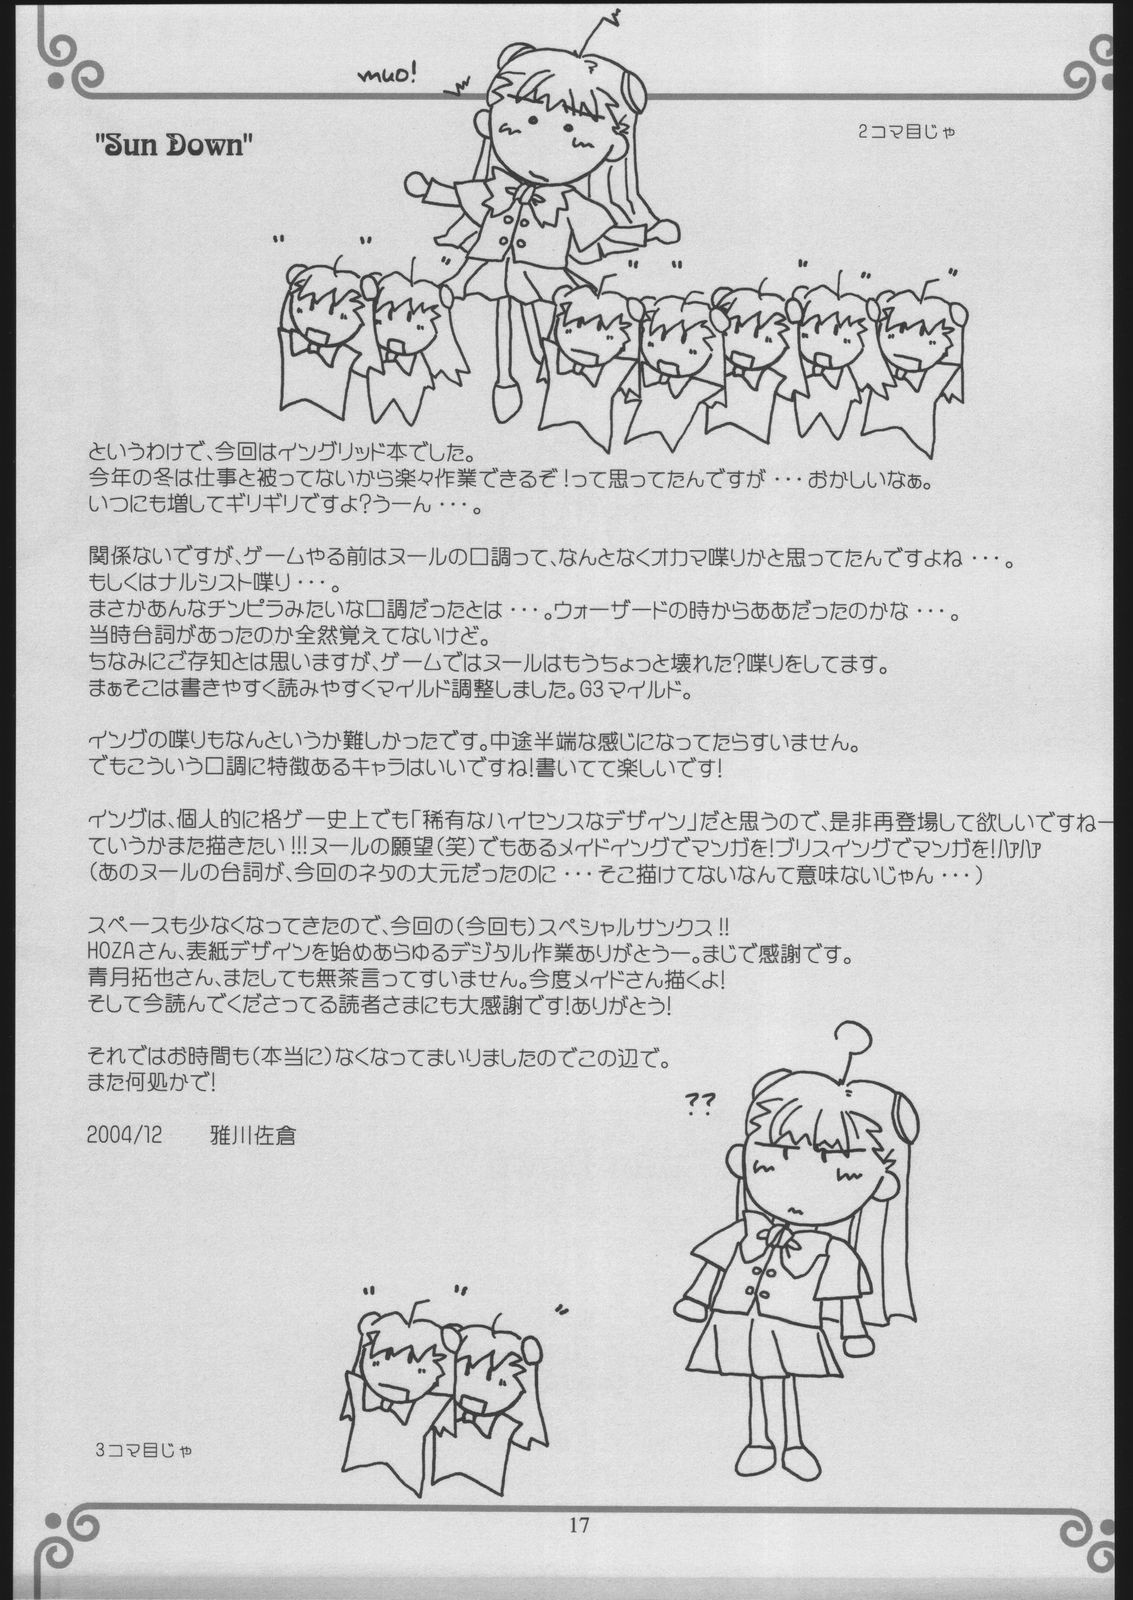 muo!
"Sun Down"
2コマ目じゃ
というわけで、今回はイングリッド本でした。
今年の冬は仕事と被ってないから楽々作業できるぞ！って思ってたんですが・・・おかしいなぁ。
いつにも増してギリギリですよ？うーん・・・。
関係ないですが、ゲームやる前はヌールの口調って、なんとなくオカマ喋りかと思ってたんですよね・・・。
もしくはナルシスト喋り・・・。
まさかあんなチンピラみたいな口調だったとは・・・。ウォーザードの時からああだったのかな・・・。
当時台詞があったのか全然覚えてないけど。
ちなみにご存知とは思いますが、ゲームではヌールはもうちょっと壊れた？喋りをしてます。
まぁそこは書きやすく読みやすくマイルド調整しました。G3マイルド。
イングの喋りもなんというか難しかったです。中途半端な感じになってたらすいません。
でもこういう口調に特徴あるキャラはいいですね！書いてて楽しいです！
イングは、個人的に格ゲー史上でも「稀有なハイセンスなデザイン」だと思うので、是非再登場して欲しいですねー
ていうかまた描きたい！！！ヌールの願望（笑）でもあるメイドイングでマンガを！ブリスイングでマンガを！ﾊｧﾊｧ
（あのヌールの台詞が、今回のネタの大元だったのに・・・そこ描けてないなんて意味ないじゃん・・・）
スペースも少なくなってきたので、今回の（今回も）スペシャルサンクス！！
HOZAさん、表紙デザインを始めあらゆるデジタル作業ありがとうー。まじで感謝です。
青月拓也さん、またしても無茶言ってすいません。今度メイドさん描くよ！
そして今読んでくださってる読者さまにも大感謝です！ありがとう！
それではお時間も（本当に）なくなってまいりましたのでこの辺で。
また何処かで！
2004/12 雅川佐倉
??
3コマ目じゃ
17